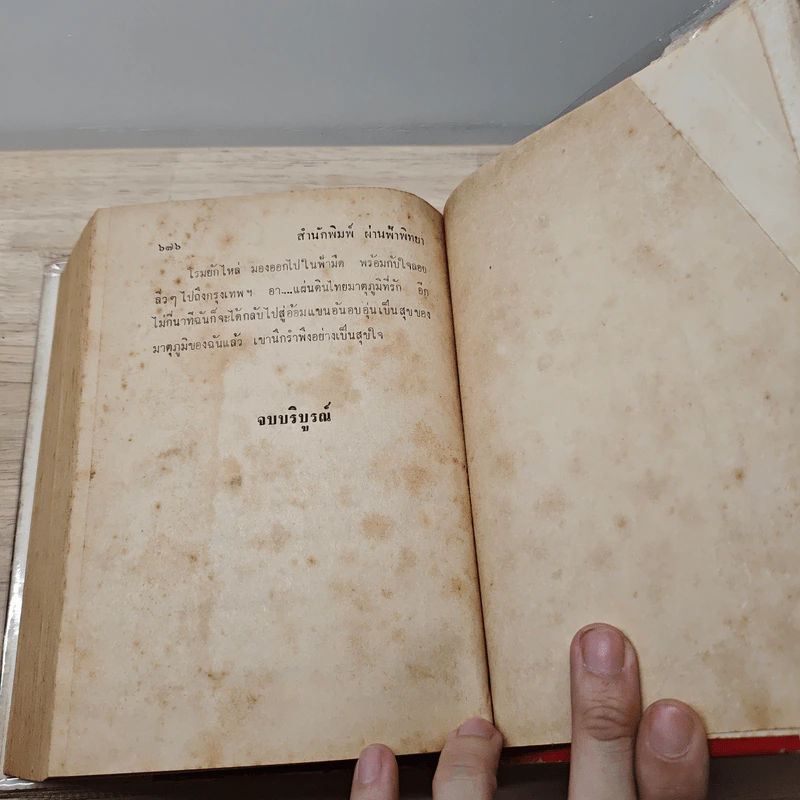 ๖๗๖ สำนักพิมพ์ ผ่านฟ้าพิทยา
โรมยักไหล่ มองออกไปในฟ้ามืด พร้อมกับใจลอย
ลิ่วๆ ไปถึงกรุงเทพฯ อา....แผ่นดินไทยมาตุภูมิที่รัก อีก
ไม่กี่นาทีฉันก็จะได้กลับไปสู่อ้อมแขนอันอบอุ่นเป็นสุขของ
มาตุภูมิของฉันแล้ว เขานึกรำพึงอย่างเป็นสุขใจ
จบบริบูรณ์